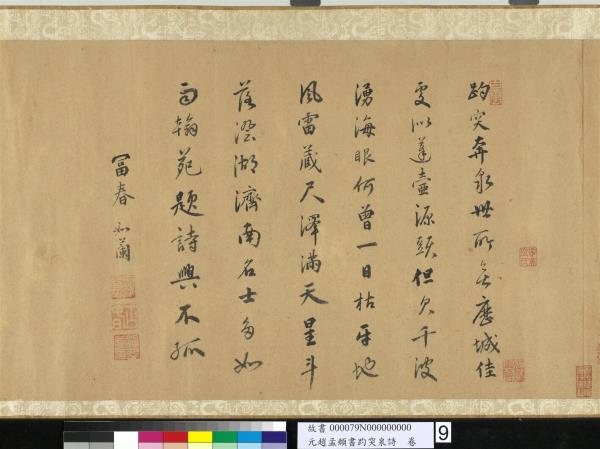 趵突奔泉世所無歷城佳
處似蓬壺源頭但欠千波
湧海眼何曾一日枯平地
風雷藏尺澤滿天星斗
落澄湖濟南名士多如
雨翰苑題詩興不孤
富春
蘭
故書 000079N000000000
元趙孟頫書趵突泉詩　卷
9